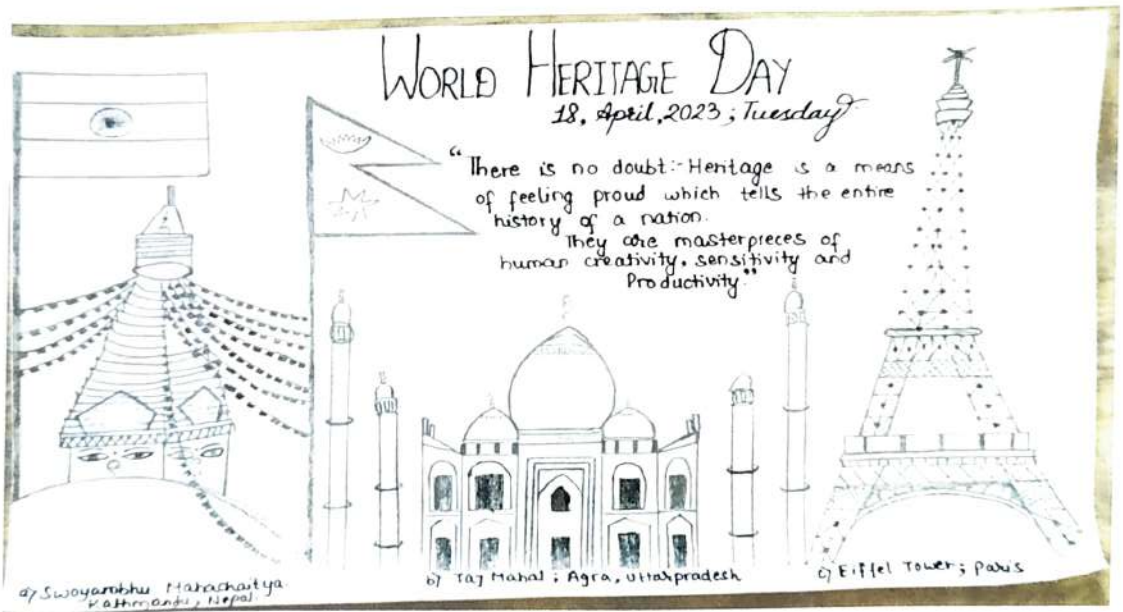 WORLD HERITAGE DAY
18, April, 2023 ; Tuesday
"There is no doubt:- Heritage is a means
of feeling proud which tells the entire
history of a nation.
They are masterpreces of
human creativity, sensitivity and
Productivity."
a) Swoyarobhu Mahachaitya.
Kathmandu, Nepal.
b) Taj Mahal ; Agra, uttarpradesh
c) Eiffel Tower ; paris